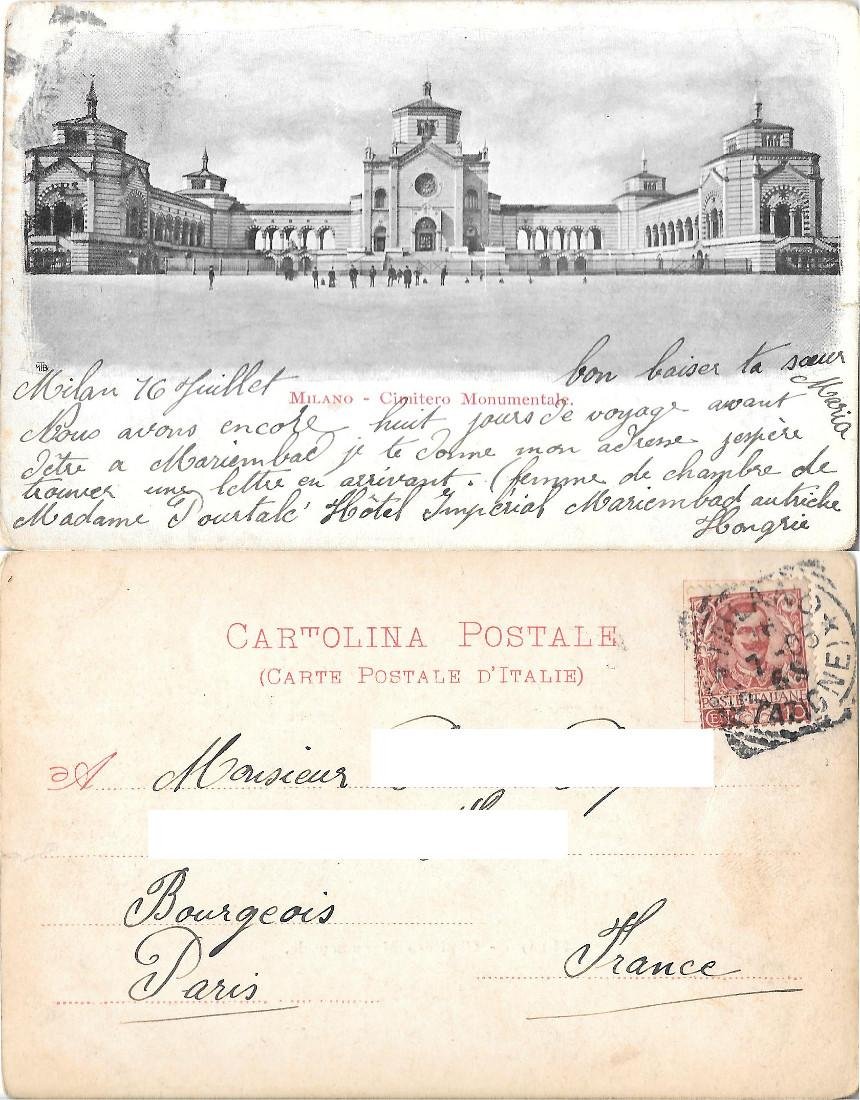 MTB
bon baiser ta sœur
Maria
Milan 16 Juillet
MILANO - Cimitero Monumentale.
Nous avons encore huit jours de voyage avant
d'être a Mariembad je te donne mon adresse jespère
trouver une lettre en arrivant. (femme de chambre de
Madame Pourtalé Hôtel Impérial Mariembad autriche
Hongrie
CARTOLINA POSTALE
(CARTE POSTALE D'ITALIE)
POSTE ITALIANE
A
Monsieur
Bourgeois
Paris
France